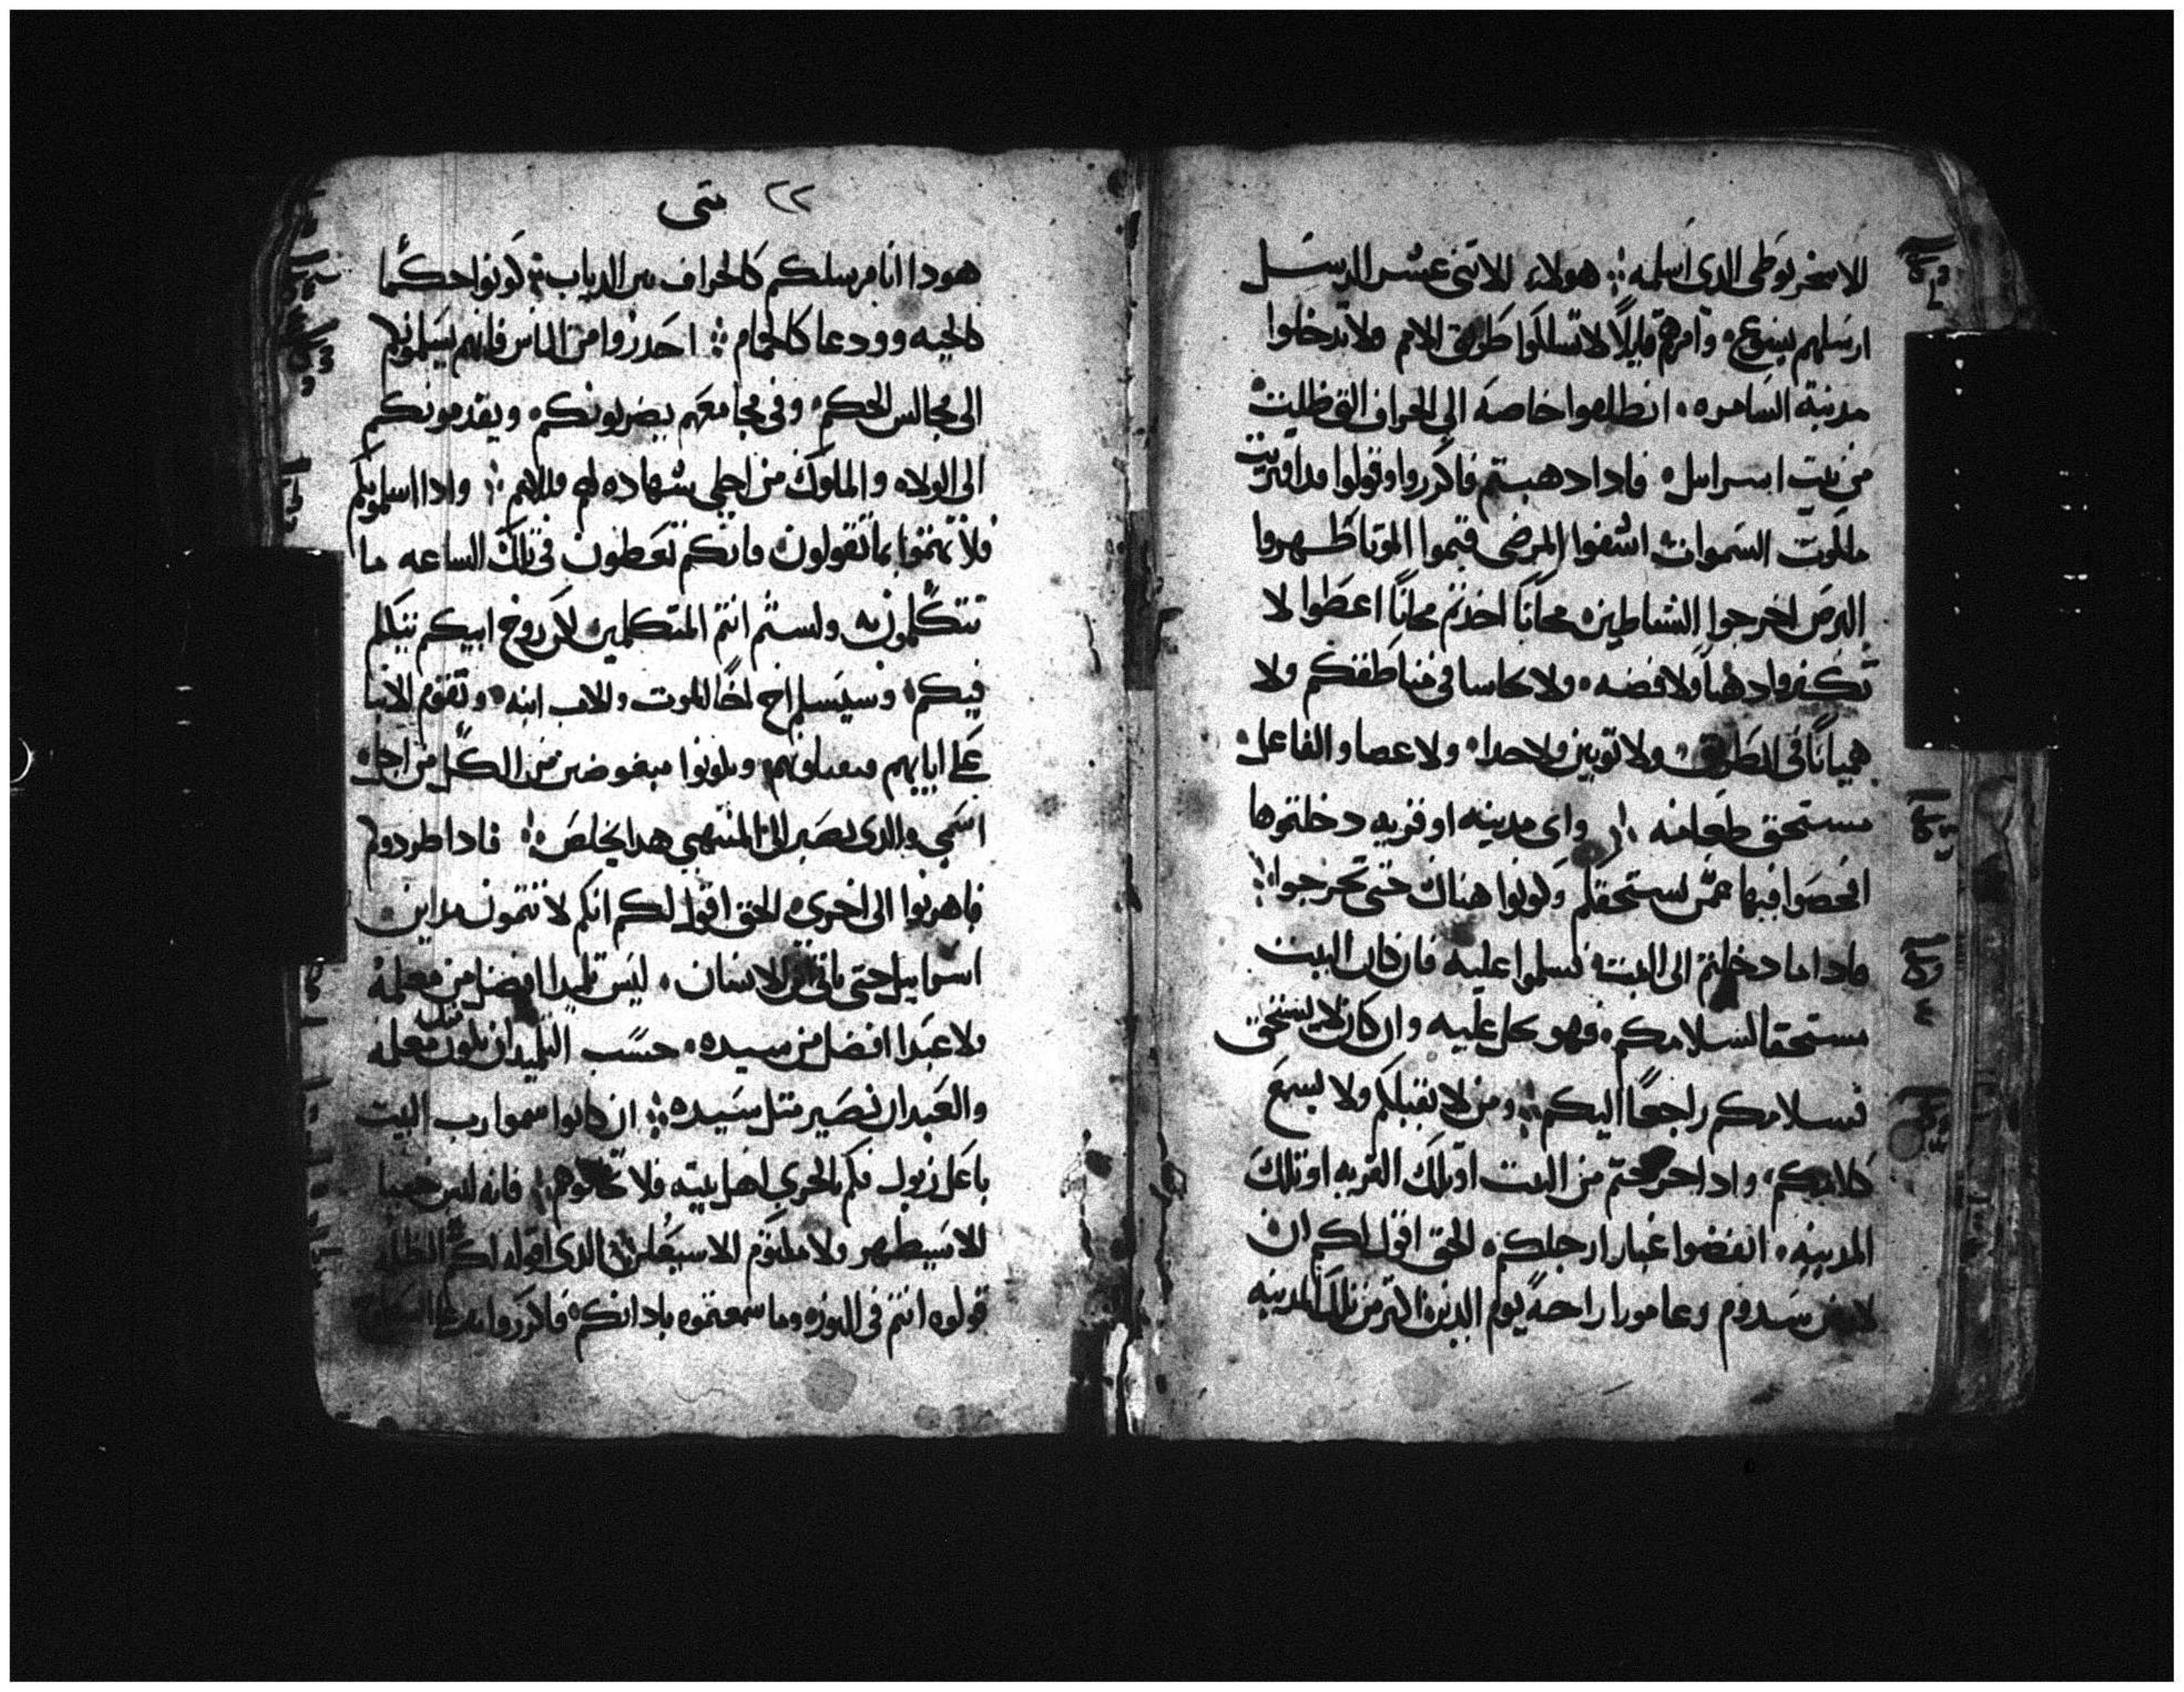 الاسخريوطى الدى اسلمه هولاء الاتنى عشر الدين
ارسلهم يسوع وامرهم قايلا لا تسلكوا طريق الامم ولا تدخلوا
مدينة السامره انطلقوا خاصة الى الخراف التى ظلت
من بيت اسراييل فادا دهبتم فاكرروا وقولوا قد اقتربت
ملكوت السموات اشفوا المرضى قيموا الموتا طهروا
البرص اخرجوا الشياطين مجانًا اخدتم مجانًا اعطوا لا
تكنزوا دهبا ولا فضه ولا نحاسا فى مناطقكم ولا
هميانًا فى الطريق ولا توبين ولا حدا ولا عصا والفاعل
مستحق طعامه واى مدينه او قريه دخلتموها
افحصوا فيها عمن يستحقكم وكونوا هناك حتى تخرجوا
فادا ما دخلتم الى البيت فسلموا عليه فان كان البيت
مستحقا لسلامكم فهو يحل عليه وان كان لا يستحق
فسلامكم راجعًا اليكم ومن لا يقبلكم ولا يسمع
كلامكم وادا خرجتم من البيت او تلك القريه او تلك
المدينه انفضوا غبار ارجلكم الحق اقول لكم ان
لارض سدوم وعامورا راحة يوم الدين اكتر من تلك المدينه
٢٢ متى
هودا انا مرسلكم كالخراف بين الدياب كونوا حكما
كالحيه وودعا كالحمام احدروا من الناس فانهم يسلمونكم
الى مجالس الحكم وفى مجامعهم يضربونكم ويقدمونكم
الى الولاه والملوك من اجلى شهاده لهم وللامم وادا اسلموكم
فلا تهتموا بما تقولون فانكم تعطون فى تلك الساعه ما
تتكلمون به ولستم انتم المتكلمين لكن روح ابيكم يتكلم
فيكم وسيسلم اخ اخًا للموت والاب ابنه وتقوم الابنا
على ابايهم فيقتلونهم وتكونوا مبغوضين من الكل من اجل
اسمى والدى يصبر الى المنتهى هدا يخلص فادا طردوكم
فاهربوا الى اخرى الحق اقول لكم انكم لا تتمون مداين
اسراييل حتى ياتى ابن الانسان ليس تلميدا افضل من معلمه
ولا عبدا افضل من سيده حسب التلميد ان يكون مثل معلمه
والعبد ان يصير متل سيده ان كانوا سموا رب البيت
باعل زبول فكم بالحرى اهل بيته فلا تخافوهم فانه ليس خفيا
الا سيظهر ولا مكتوم الا سيعلن الدى اقوله لكم فى الظلمه
قولوه انتم فى النور وما سمعتموه بادانكم فاكرزوا به على السطوح